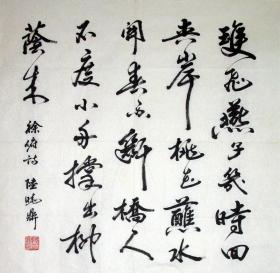 雙飛燕子幾時回
夾岸桃花蘸水
開春雨斷橋人
不度小舟撐出柳
蔭来
徐俯詩 陸曉鼎